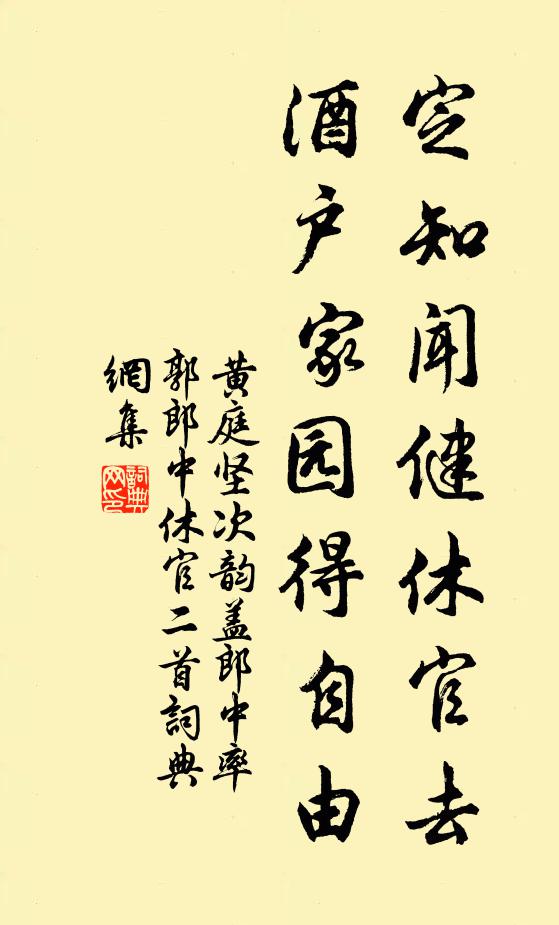 定知闻健休官去
酒户家园得自由
黄庭坚次韵盖郎中率
郭郎中休官二首詞典
網集
詞典
网印